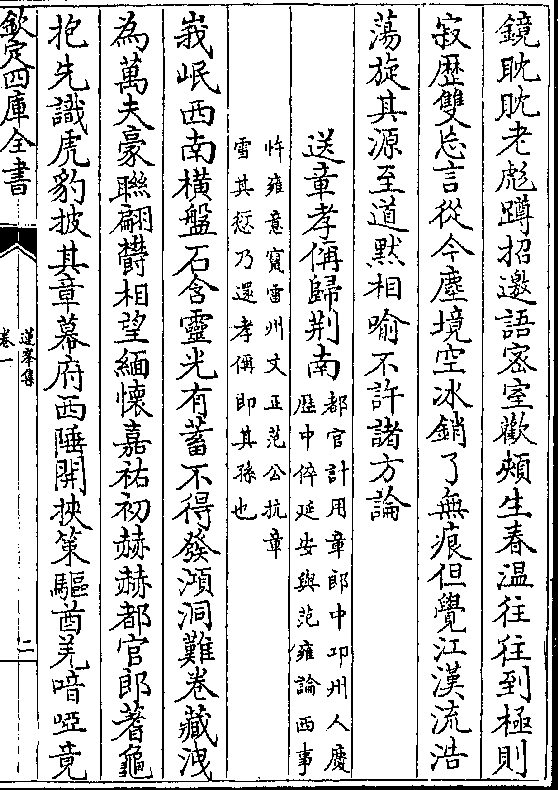 鏡眈眈老彪蹲招邀語宻室歡頰生春温往往到極則
寂歴雙忘言從今塵境空冰銷了無痕但覺江漢流浩
蕩旋其源至道黙相喻不許諸方論
送章孝偁歸荆南
都官計用章郎中卭州人慶
歴中倅延安與范雍論西事
忤雍意竄雷州文正范公抗章
雪其愆乃還孝偁即其孫也
峩岷西南横盤石含靈光有蓄不得發澒洞難卷藏洩
為萬夫豪聯翩欎相望緬懐嘉祐初赫赫都官郎蓍龜
抱先識虎豹披其章幕府西陲開挾策驅酋羌喑啞竟
欽定四庫全書
蓮峯集
卷一
二